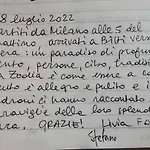 8 luglio 2022
Partiti da Milano alle 5 del
mattino, arrivati a Bitti verso
sera: un paradiso di profumi
vento, persone, cibo, tradizi
Zoolia è come essere a ca
tutto è allegro e pulito e i
padroni ci hanno raccontato
meraviglie della loro splend
GRAZIE! Livia
Stefano